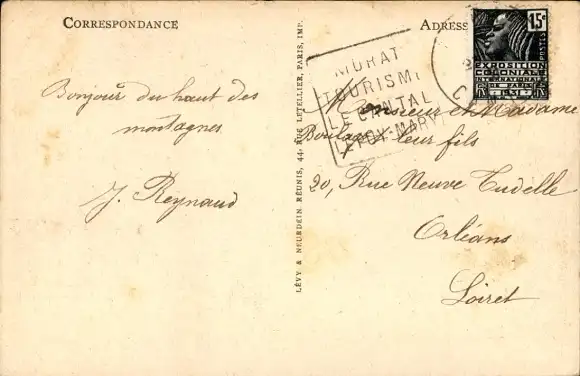 CORRESPONDANCE
Bonjour du haut des
montagnes
J. Reynaud
LÉVY & NEURDEIN RÉUNIS, 44, RUE LETELLIER, PARIS, IMP.
ADRESS
MURAT
TOURISME
LE CANTAL
LE PUY-MARY
15c
POSTES
EXPOSITION
COLONIALE
INTERNATIONALE
DE PARIS
1931
Monsieur et Madame
leur fils
20, Rue Neuve Tudelle
Orléans
Loiret